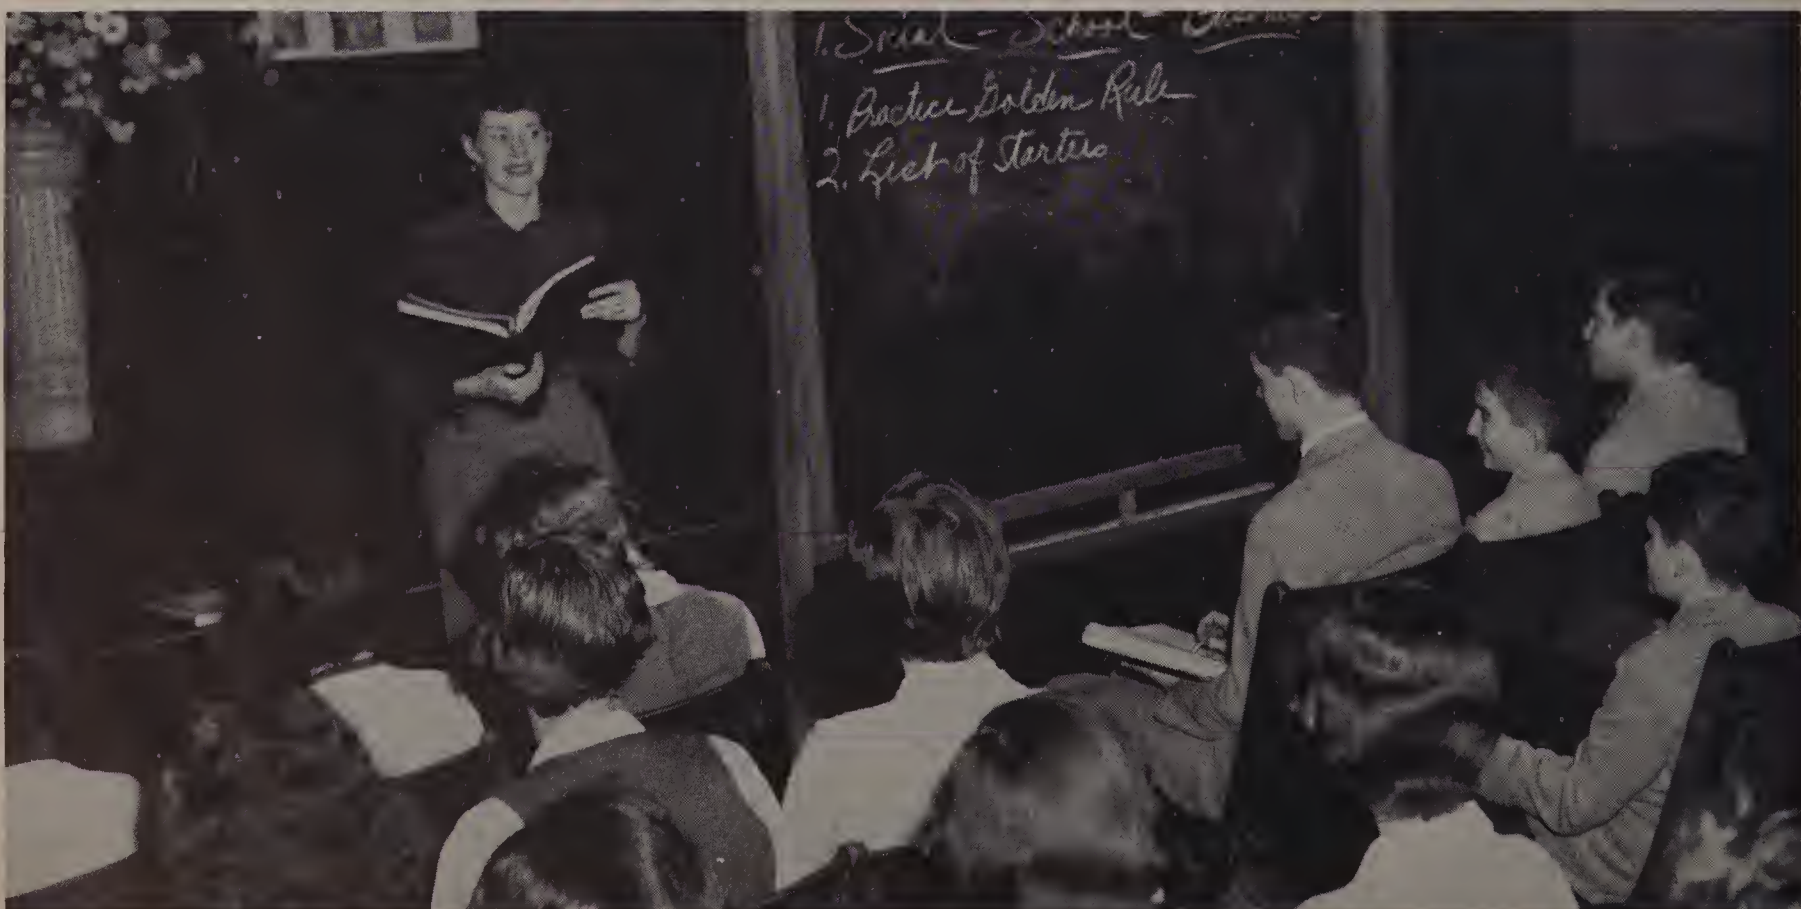 1. Social - School - Business
1. Practice Golden Rule
2. List of Starters